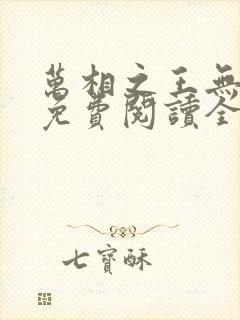 萬相之王無
免費閱讀全
七寶酥